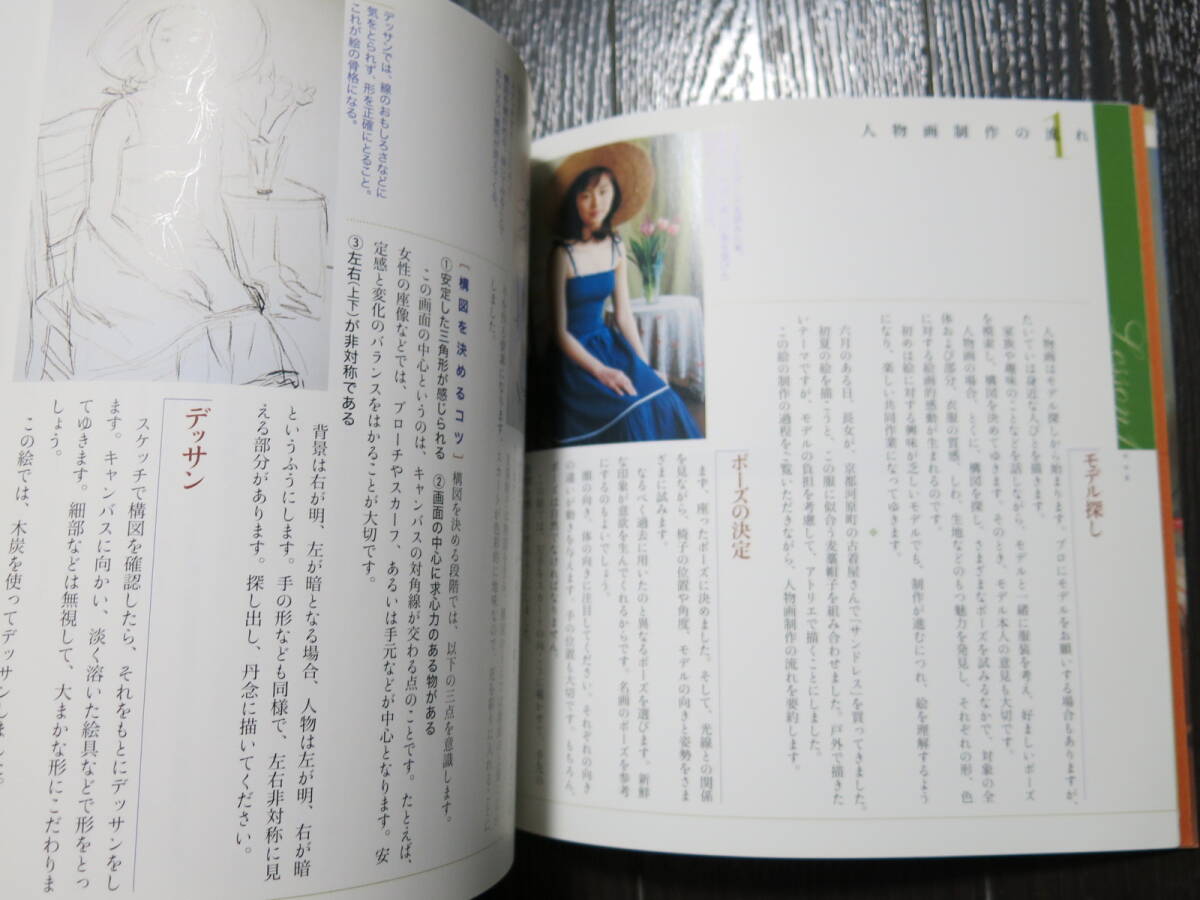 人物画制作の流れ
1
Lesson 1
モデル探し
人物画はモデル探しから始まります。プロにモデルをお願いする場合もありますが、
たいていは身近な人びとを描きます。
家族や趣味のことなどを話しながら、モデルと一緒に服装を考え、好ましいポーズ
を模索し、構図を決めてゆきます。そのとき、モデル本人の意見も大切です。
人物画の場合、とくに、構図を探し、さまざまなポーズを試みるなかで、対象の全
体および部分、衣服の質感、しわ、生地などのもつ魅力を発見し、それぞれの形、色
に対する絵画的感動が生まれるのです。
初めは絵に対する興味が乏しいモデルでも、制作が進むにつれ、絵を理解するよう
になり、楽しい共同作業になってゆきます。
六月のある日、長女が、京都河原町の古着屋さんで「サンドレス」を買ってきました。
初夏の絵を描こうと、この服に似合う麦藁帽子を組み合わせました。戸外で描きた
いテーマですが、モデルの負担を考慮して、アトリエで描くことにしました。
この絵の制作の過程をご覧いただきながら、人物画制作の流れを要約します。
ポーズの決定
まず、座ったポーズに決めました。そして、光線との関係
を見ながら、椅子の位置や角度、モデルの向きと姿勢をさま
ざまに試みます。
なるべく過去に用いたのと異なるポーズを選びます。新鮮
な印象が意欲を生んでくれるからです。名画のポーズを参考
にするのもよいでしょう。
顔の向き、体の向きに注目してください。それぞれの向き
の違いが動きを与えます。手の位置も大切です。もちろん、
しました。
［構図を決めるコツ］ 構図を決める段階では、以下の三点を意識します。
①安定した三角形が感じられる ②画面の中心に求心力のある物がある
この画面の中心というのは、キャンバスの対角線が交わる点のことです。たとえば、
女性の座像などでは、ブローチやスカーフ、あるいは手元などが中心となります。安
定感と変化のバランスをはかることが大切です。
③左右（上下）が非対称である
背景は右が明、左が暗となる場合、人物は左が明、右が暗
というふうにします。手の形なども同様で、左右非対称に見
える部分があります。探し出し、丹念に描いてください。
デッサンでは、線のおもしろさなどに
気をとられず、形を正確にとること。
これが絵の骨格になる。
デッサン
スケッチで構図を確認したら、それをもとにデッサンをし
ます。キャンバスに向かい、淡く溶いた絵具などで形をとっ
てゆきます。細部などは無視して、大まかな形にこだわりま
しょう。
この絵では、木炭を使ってデッサンしました。